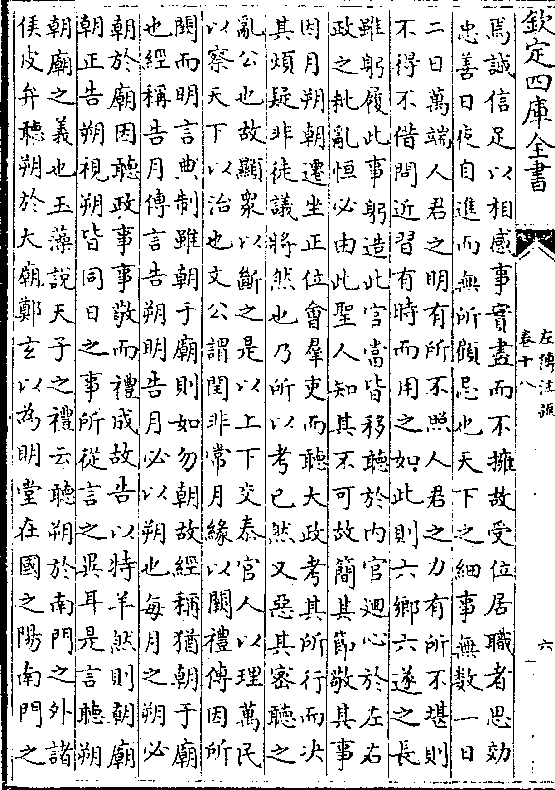 欽定四庫全書
左傳注疏
卷十八
六
焉誠信足以相感事實盡而不擁故受位居職者思効
忠善日夜自進而無所顧忌也天下之細事無數一日
二日萬端人君之明有所不照人君之力有所不堪則
不得不借問近習有時而用之如此則六鄉六遂之長
雖躬履此事躬造此官當皆移聽於内官迴心於左右
政之粃亂恒必由此聖人知其不可故簡其節敬其事
因月朔朝遷坐正位會羣吏而聽大政考其所行而決
其煩疑非徒議將然也乃所以考已然又惡其密聽之
亂公也故顯衆以斷之是以上下交泰官人以理萬民
以察天下以治也文公謂閏非常月緣以闕禮傳因所
闕而明言典制雖朝于廟則如勿朝故經稱猶朝于廟
也經稱告月傳言告朔明告月必以朔也每月之朔必
朝於廟因聽政事事敬而禮成故告以特羊然則朝廟
朝正告朔視朔皆同日之事所從言之異耳是言聽朔
朝廟之義也玉藻說天子之禮云聽朔於南門之外諸
侯皮弁聽朔於大廟鄭玄以為明堂在國之陽南門之